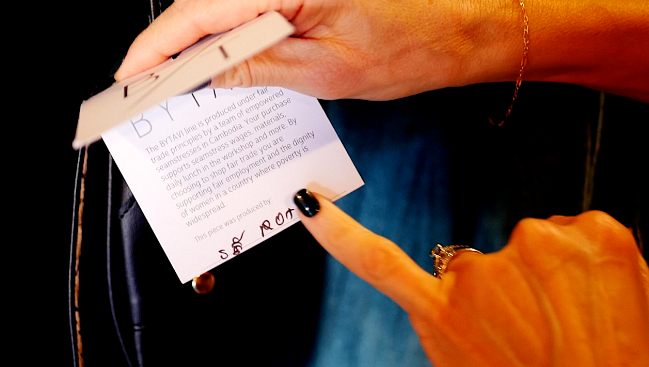 BYTAVI
The BYTAVI line is produced under fair
trade principles by a team of empowered
seamstresses in Cambodia. Your purchase
supports seamstress wages, materials,
daily lunch in the workshop and more. By
choosing to shop fair trade you are
supporting fair employment and the dignity
of women in a country where poverty is
widespread.
This piece was produced by